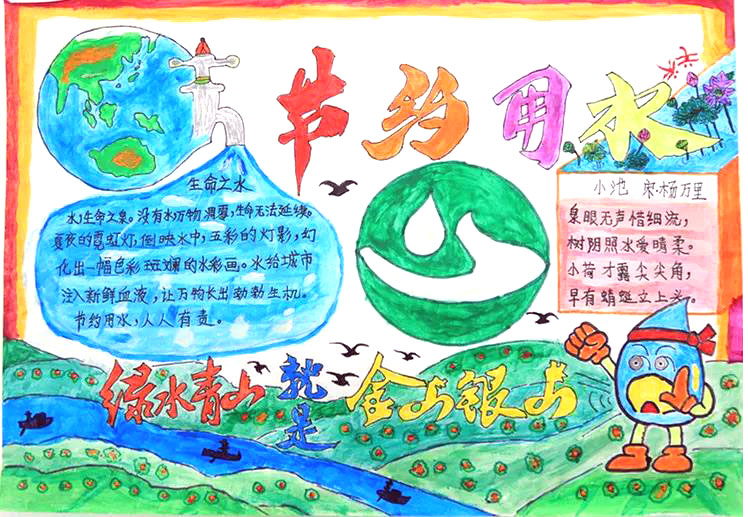 节约用水
生命之水
水,生命之泉。没有水万物凋零,生命无法延续。
夏夜的霓虹灯,倒映水中,五彩的灯影,幻
化出一幅色彩斑斓的水彩画。水给城市
注入新鲜血液,让万物长出勃勃生机。
节约用水,人人有责。
小池 宋·杨万里
泉眼无声惜细流,
树阴照水爱晴柔。
小荷才露尖尖角,
早有蜻蜓立上头。
绿水青山就是金山银山